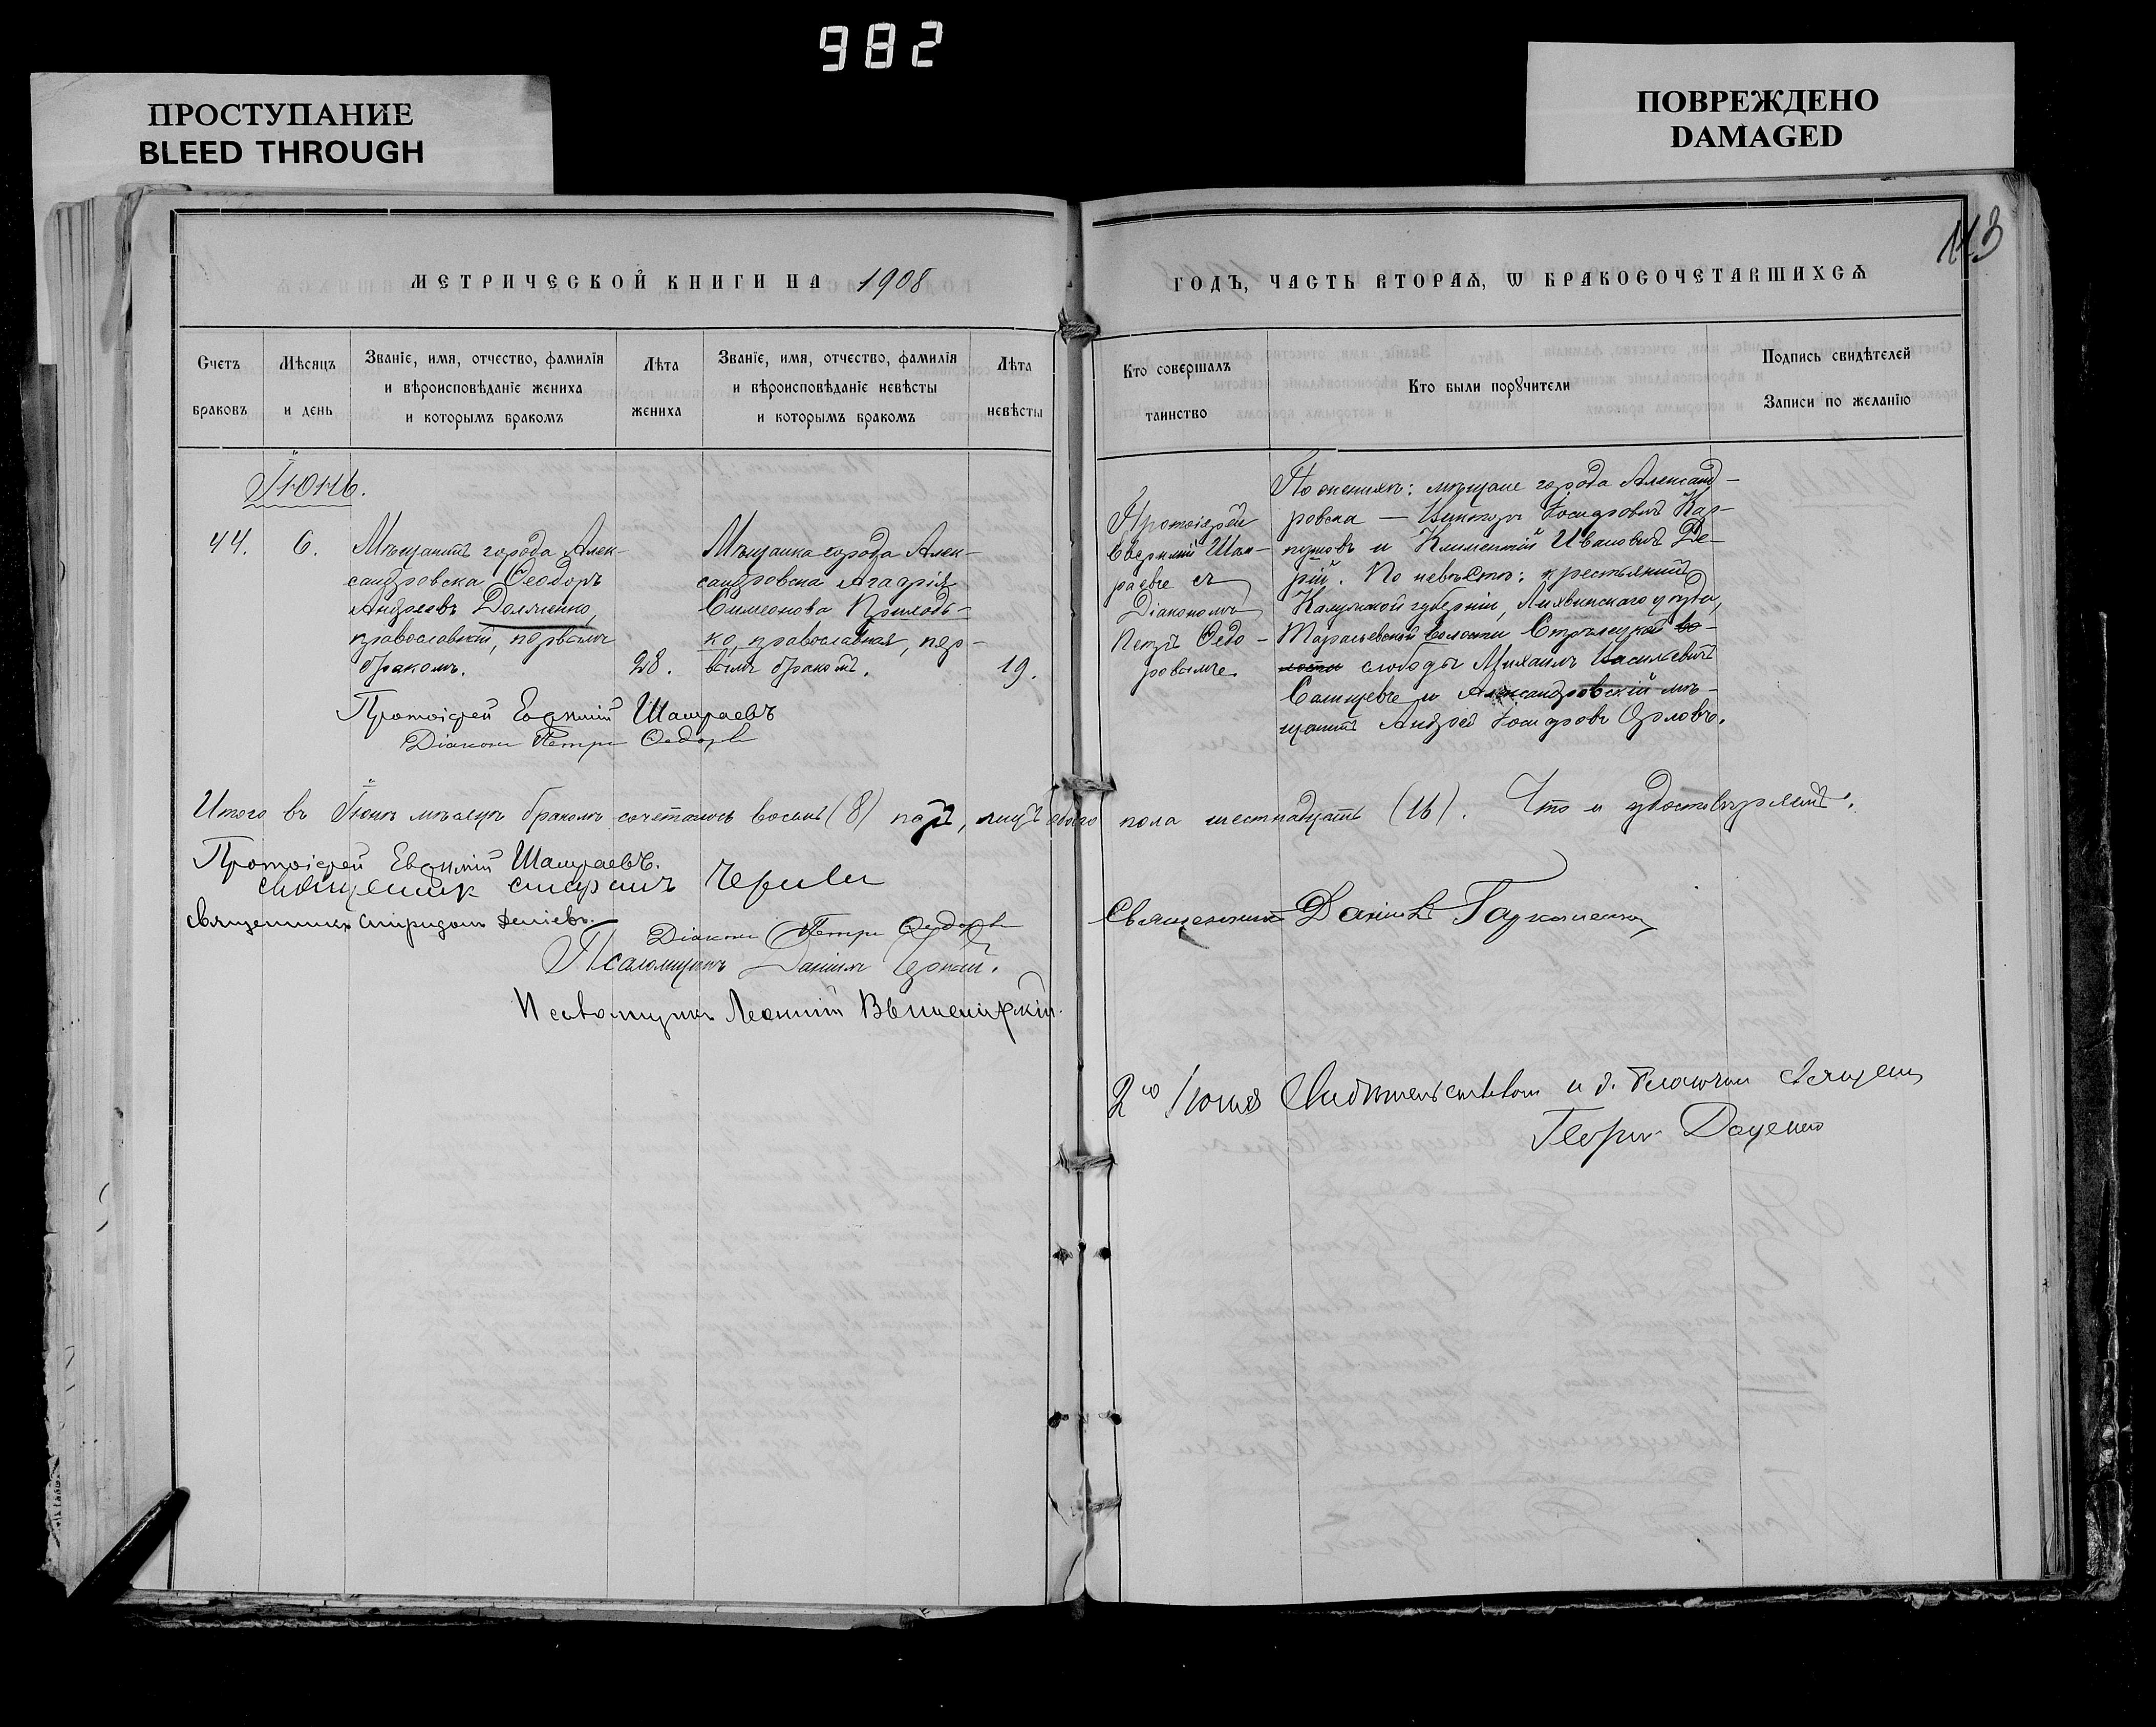 982
ПРОСТУПАНИЕ
BLEED THROUGH
ПОВРЕЖДЕНО
DAMAGED
113
МЕТРИЧЕСКОЙ КНИГИ НА 1908
ГОДЪ, ЧАСТЬ ВТОРАѦ, Ѡ БРАКОСОЧЕТАВШИХСѦ
Счетъ
браковъ
Мѣсяцъ
и день
Званіе, имя, отчество, фамилія
и вѣроисповѣданіе жениха
и которымъ бракомъ
Лѣта
жениха
Званіе, имя, отчество, фамилія
и вѣроисповѣданіе невѣсты
и которымъ бракомъ
Лѣта
невѣсты
Кто совершалъ
таинство
Кто были порꙋчители
Подпись свидѣтелей
Записи по желанію
Іюнь.
44.
6.
Мѣщанинъ города Алек-
сандровска Ѳеодоръ
Андреевъ Долженко,
православный, первымъ
бракомъ.
28.
Мѣщанка города Алек-
сандровска Агафія
Симеонова Приходь-
ко, православная, пер-
вымъ бракомъ.
19.
Протоіерей
Евѳимій Шам-
раевъ съ
Діакономъ
Петръ Ѳедо-
ровымъ
По женихѣ: мѣщане города Александ-
ровска — Викторъ Іосифовичъ Кар-
пуновъ и Климентій Ивановичъ Де-
рій. По невѣстѣ: крестьянинъ
Калужской губерніи, Лихвинскаго уѣзда,
волости Стрѣлецкой во-
лости слободы Михаилъ Васильевичъ
и Александровскій мѣ-
щанинъ Андрей Іосифовъ Орловъ.
Протоіерей Евѳимій Шамраевъ
Діаконъ Петръ Ѳедоровъ
Итого въ Іюнѣ мѣсяцѣ бракомъ сочеталось восемь (8) паръ, лицъ обоего пола шестнадцать (16). Что и удостовѣряемъ:
Протоіерей Евѳимій Шамраевъ.
священник
Священникъ Спиридонъ
Священникъ Даніилъ
Діаконъ Петръ Ѳедоровъ
Псаломщикъ Даніилъ
Псаломщикъ Леонтій
2го Іюля и д.
Георгій Доценко